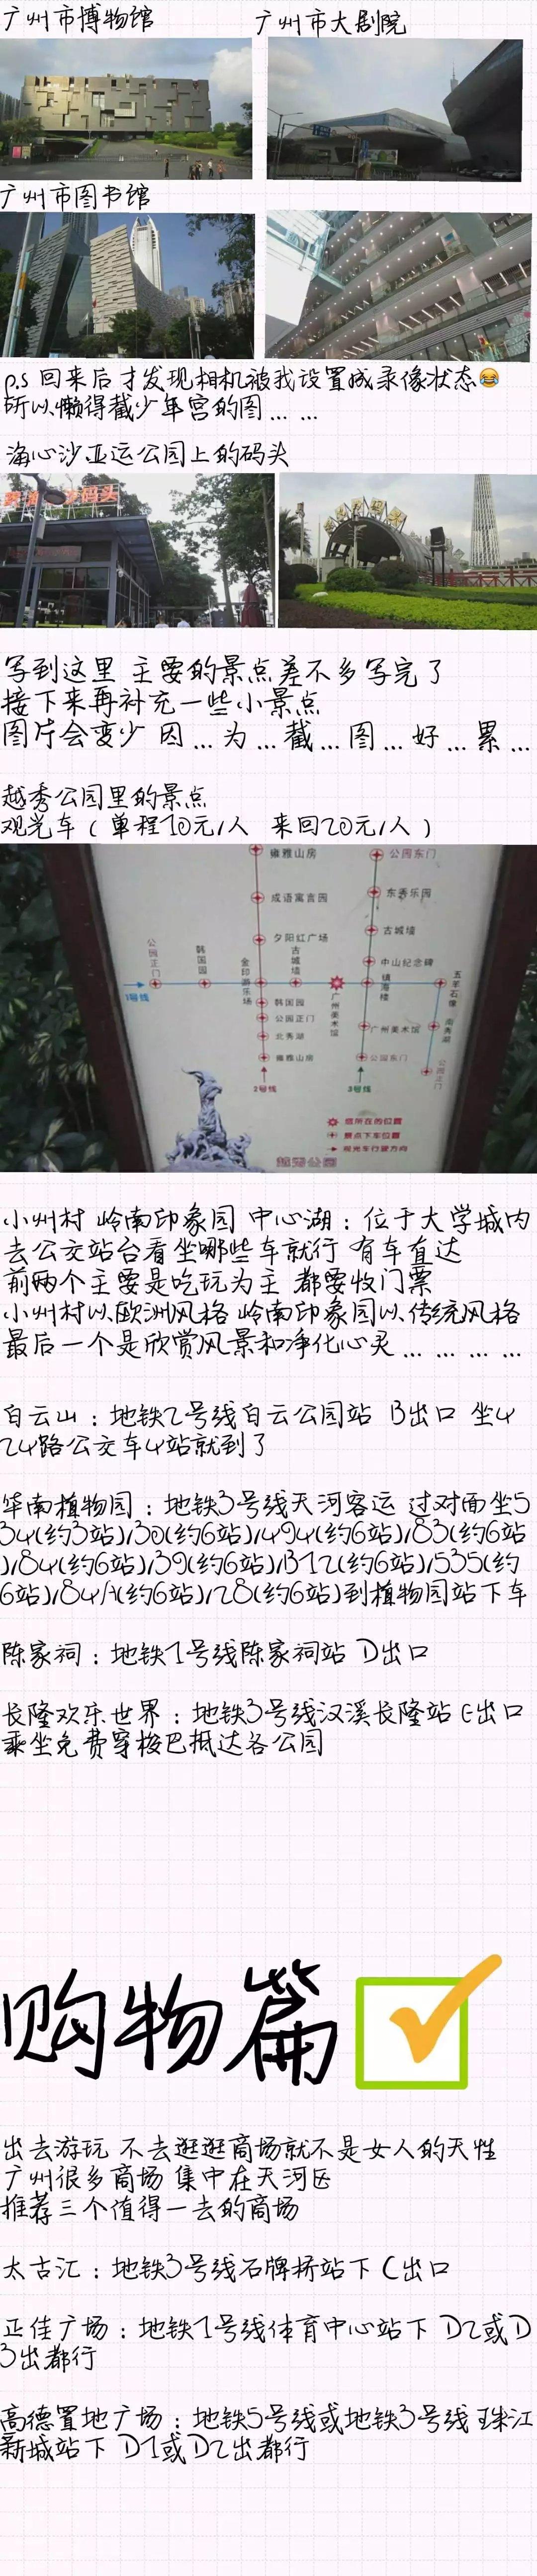 广州市博物馆
广州市大剧院
广州市图书馆
p.s 回来后才发现相机被我设置成录像状态😂
所以懒得截少年宫的图... ...
海心沙亚运公园上的码头
码头
写到这里 主要的景点差不多写完了
接下来再补充一些小景点
图片会变少 因...为...截...图...好...累...
越秀公园里的景点
观光车(单程10元/人 来回20元/人)
雍雅山房
公园东门
成语寓言园
东秀乐园
夕阳红广场
古城墙
中山纪念碑
公园正门
韩国园
金印游乐场
古城墙
广州美术馆
镇海楼
五羊石像
1号线
韩国园
公园正门
北秀湖
雍雅山房
广州美术馆
公园东门
南秀湖
公园正门
2号线
3号线
您所在的位置
景点下车位置
观光车行驶方向
越秀公园
小州村 岭南印象园 中心湖:位于大学城内
去公交站台看坐哪些车就行 有车直达
前两个主要是吃玩为主 都要收门票
小州村以欧洲风格 岭南印象园以传统风格
最后一个是欣赏风景和净化心灵... ... ... ...
白云山:地铁2号线白云公园站 B出口 坐4
24路公交车4站就到了
华南植物园:地铁3号线天河客运 过对面坐5
34(约3站)/30(约6站)/494(约6站)/83(约6站
)/84(约6站)/39(约6站)/B12(约6站)/535(约
6站)/84A(约6站)/28(约6站)到植物园站下车
陈家祠:地铁1号线陈家祠站 D出口
长隆欢乐世界:地铁3号线汉溪长隆站 E出口
乘坐免费穿梭巴抵达各公园
购物篇
出去游玩 不去逛逛商场就不是女人的天性
广州很多商场 集中在天河区
推荐三个值得一去的商场
太古汇:地铁3号线石牌桥站下 C出口
正佳广场:地铁1号线体育中心站下 D2或D
3出都行
高德置地广场:地铁5号线或地铁3号线 珠江
新城站下 D1或D2出都行